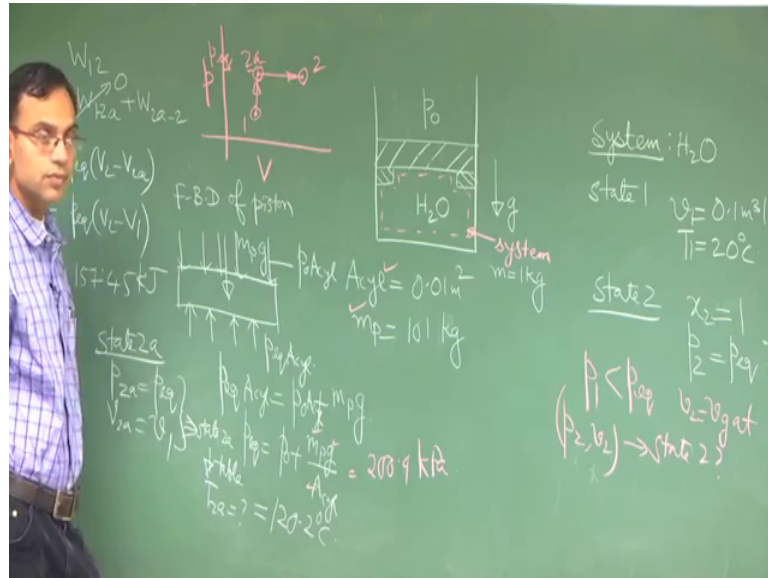 W12
W12a + W2a-2
0
peq(V2-V2a)
= peq(V2-V1)
157.45 kJ
p
2a
2
1
V
F-B-D of piston
mpg
p0Acyl
peqAcyl
peq Acyl = p0A + mpg
peq = p0 + mpg/Acyl = 200.9 kPa
state 2a
p2a = peq
v2a = v1
⇒ state 2a
p-table
T2a = ? = 120.2°C
p0
H2O
g
system
m = 1 kg
Acyl = 0.01 m²
mp = 101 kg
System : H2O
state 1
v1 = 0.1 m³/
T1 = 20°C
state 2
x2 = 1
p2 = peq
p1 < peq
v2 = vg at
(p2, v2) → state 2?